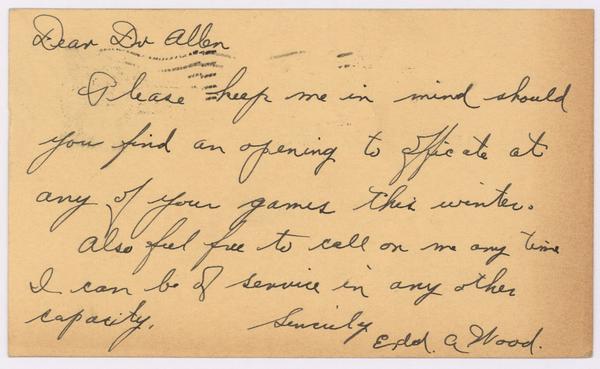 Dear Dr Allen
Please keep me in mind should
you find an opening to officate at
any of your games this winter.
Also feel free to call on me any time
I can be of service in any other
capacity. Sincerely
Edd. A Wood.